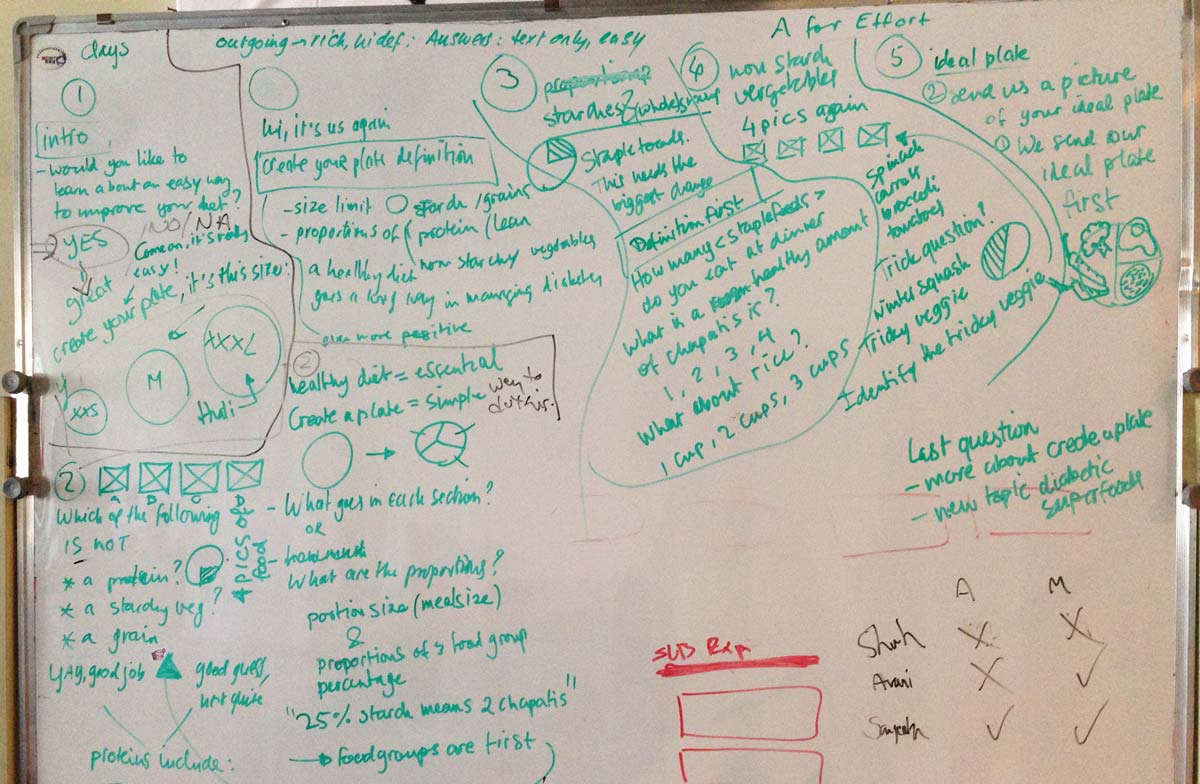 days
outgoing → rich, hi def; Answers: text only, easy
A for Effort
1
intro
- would you like to
learn about an easy way
to improve your diet?
NO/NA
YES
Come on, it's really
easy!
great
create your plate, it's this size:
XXS
M
XXXL
thali
hi, it's us again
Create your plate definition
- size limit
starch/grains
- proportions of
protein/lean
non starchy vegetables
a healthy diet
goes a long way in managing diabetes
even more positive
2
healthy diet = essential
Create a plate = simple way to
do this.
- What goes in each section?
OR
What are the proportions?
portion size (mealsize)
&
proportions of 3 food group
percentage
"25% starch means 2 chapatis"
→ food groups are first
2
A B C D
4 PICS
of
food
Which of the following
is not
* a protein?
* a starchy veg?
* a grain
YAY, good job
good guess,
not quite
proteins include:
3
proportions?
starches & wholegrains
Staple foods.
This needs the
biggest change
Definition first
How many <staplefoods>
do you eat at dinner
What is a healthy amount
of chapatis is?
1, 2, 3, 4
what about rice?
1 cup, 2 cups, 3 cups
4
non starch
vergetables
4 pics again
spinach
carrots
broccoli
tomatoes
Trick question?
winter squash
Tricky veggie
Identify the tricky veggie
5
ideal plate
② Send us a picture
of your ideal plate
① We send our
ideal plate
first
Last question
- more about create a plate
- new topic diabetic
superfoods
SUB Exp
A M
Shah X X
Avani X ✓
Sanjeebh ✓ ✓